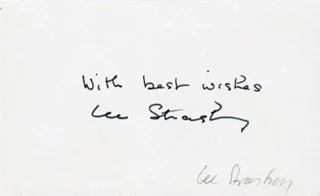 With best wishes
Lee Strasberg
Lee